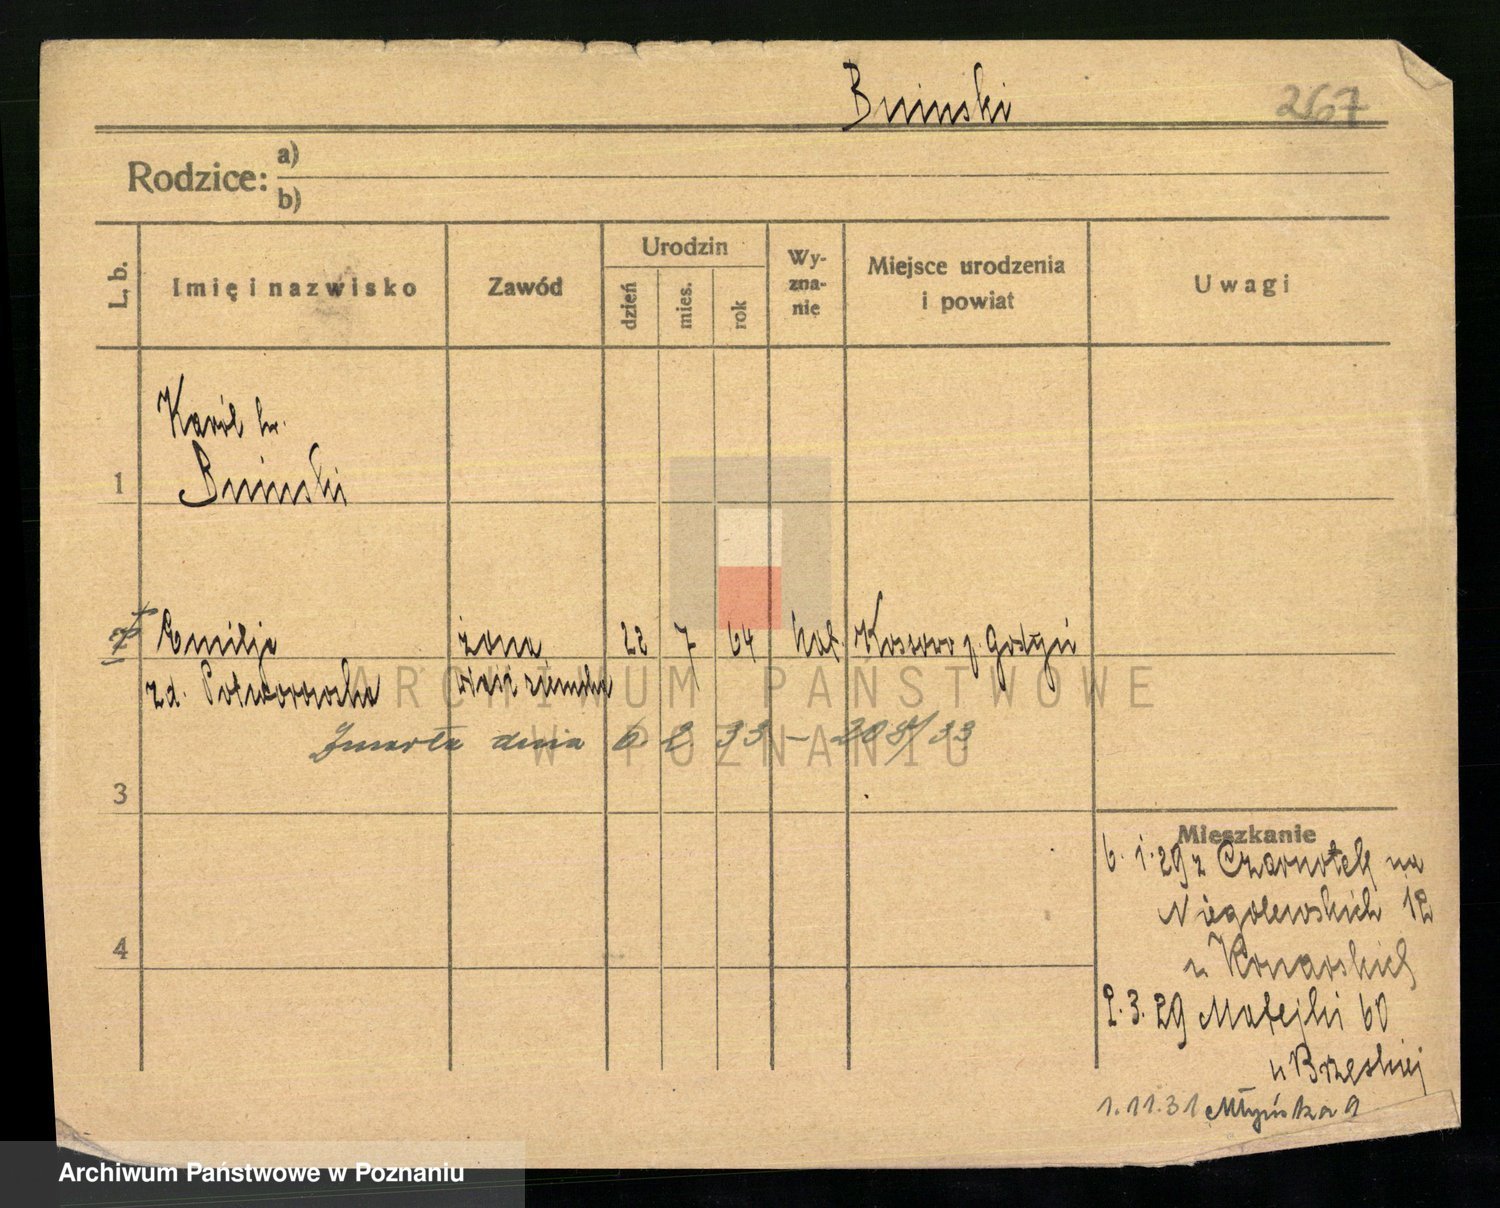 Bniński
267
Rodzice: a)
b)
L. b.
Imię i nazwisko
Zawód
Urodzin
dzień
mies.
rok
Wy-
zna-
nie
Miejsce urodzenia
i powiat
Uwagi
Karól hr.
1 Bniński
Emilja żona 22 7 64 kat. Kossowo p. Gostyń
zd. Potworowska ziemska
ARCHIWUM PAŃSTWOWE
W POZNANIU
Zmarła dnia 6. 2. 33 – 208/33
3
Mieszkanie
6. 1. 29 z Czarnotek na
Niegolewskich 12
u Konarskich
4
2. 3. 29 Matejki 60
u Brzeskiej
1.11.31 Młyńska 9
Archiwum Państwowe w Poznaniu